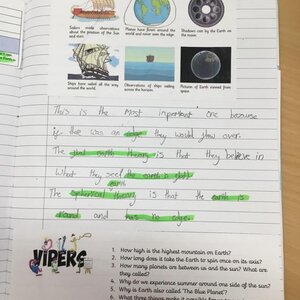 Sailors made observations about the position of the Sun and stars.
Planes have flown around the world and never over the edge.
Shadows cast by the Earth on the moon.
Ships have sailed all the way around the world.
Observations of ships sailing across the horizon.
Pictures of Earth viewed from space.
This is the most important one because
if there was an edge they would glow over.
The flat earth theory is that they believe in
What they see the earth is flat
earth
The spherical theory is that the earth is
round and has no edge.
VIPERS
1. How high is the highest mountain on Earth?
2. How long does it take the Earth to spin once on its axis?
3. How many planets are between us and the sun? What are they called?
4. Why do we experience summer around one side of the sun?
5. Why is Earth also called 'The Blue Planet'?
6. What three things make it possible for